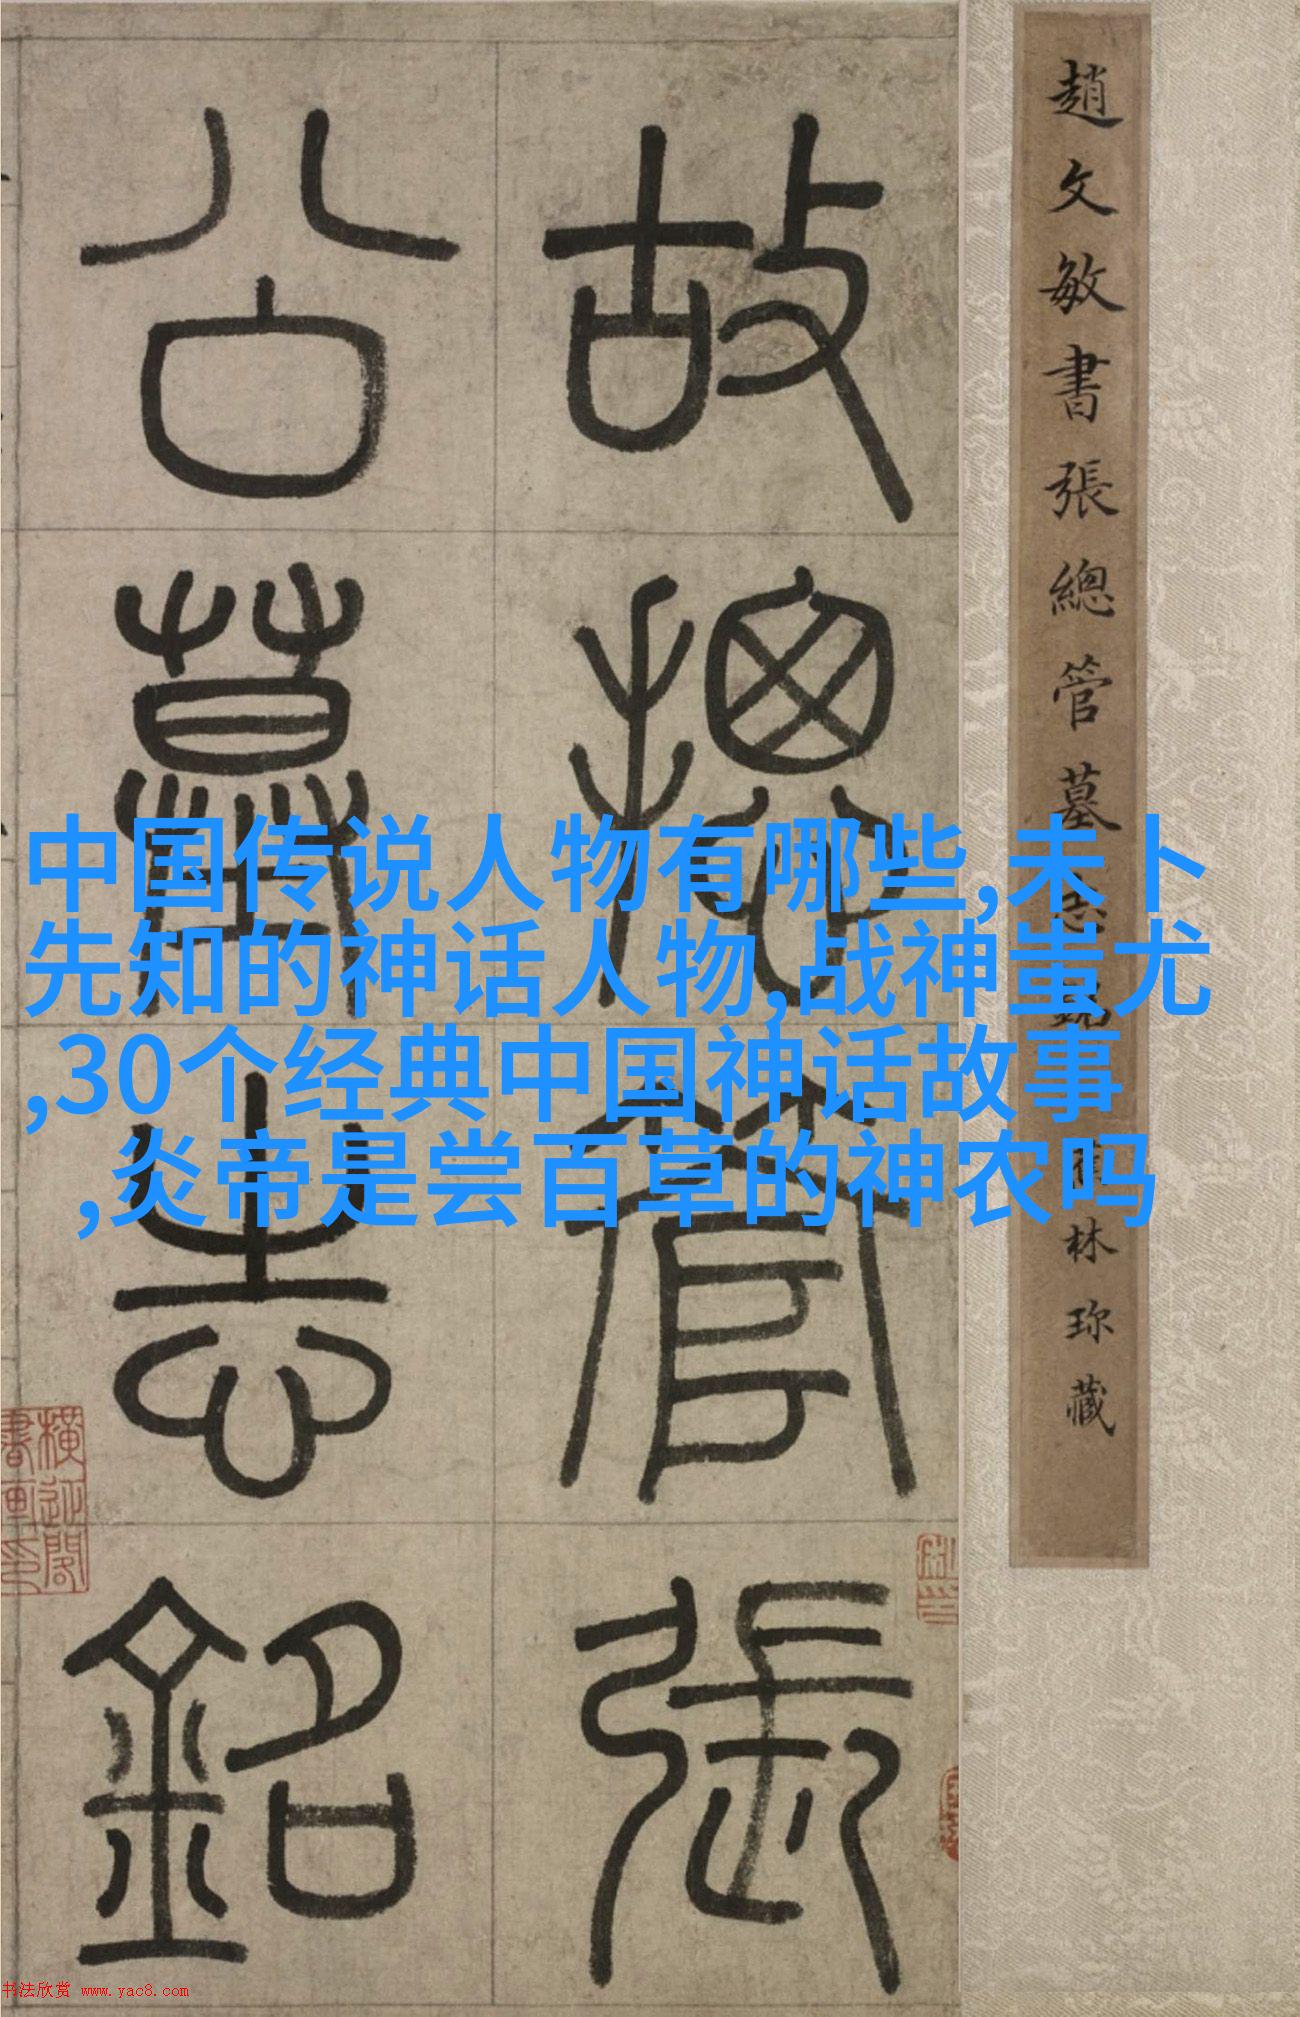 趙文敏書張總管墓
林珎藏
故摠管張
公墓志銘
中国传说人物有哪些,未卜
先知的神话人物,战神蚩尤
,30个经典中国神话故事
,炎帝是尝百草的神农吗
横近閣
書画印
书法欣赏 www.yac8.com